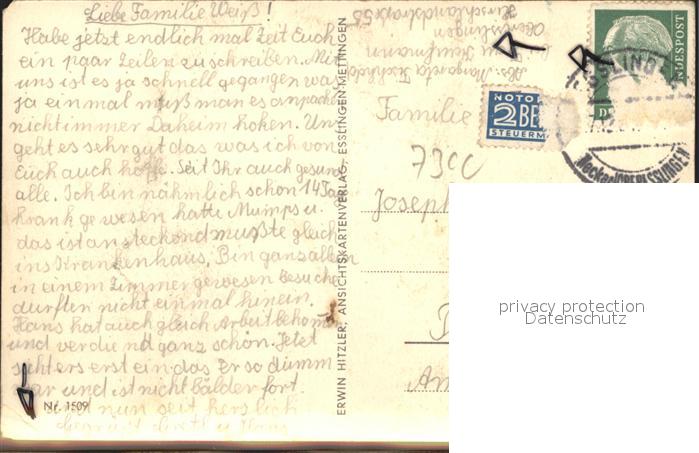 Liebe Familie Weiß!
Habe jetzt endlich mal Zeit Euch
ein paar Zeilen zu schreiben. Mit
uns ist es ja schnell gegangen was
ja einmal muß man es anpacken
nicht immer Daheim hoken. Uns
geht es sehr gut das was ich von
Euch auch hoffe. Seit Ihr auch gesund
alle. Ich bin nähmlich schon 14 Tag
krank gewesen hatte Mumps u.
das ist ansteckend mußte gleich
ins Krankenhaus. Bin ganz allein
in einem Zimmer gewesen Besuche
durften nicht einmal hinein.
Hans hat auch gleich Arbeit bekomm
und verdiend ganz schön. Jetzt
siht ers erst ein das Er so dumm
war und ist nicht bälder fort.
nun seit herslich
Nr. 1509
ERWIN HITZLER, ANSICHTSKARTENVERLAG, ESSLINGEN-METTINGEN
Hirschlandstraße 55
Oberesslingen
Abs. Margareta
NOTO
2 BE
STEUERM
NDESPOST
ESSLING
Neckar) OBERESSLINGEN
Familie
7300
Joseph
privacy protection
Datenschutz